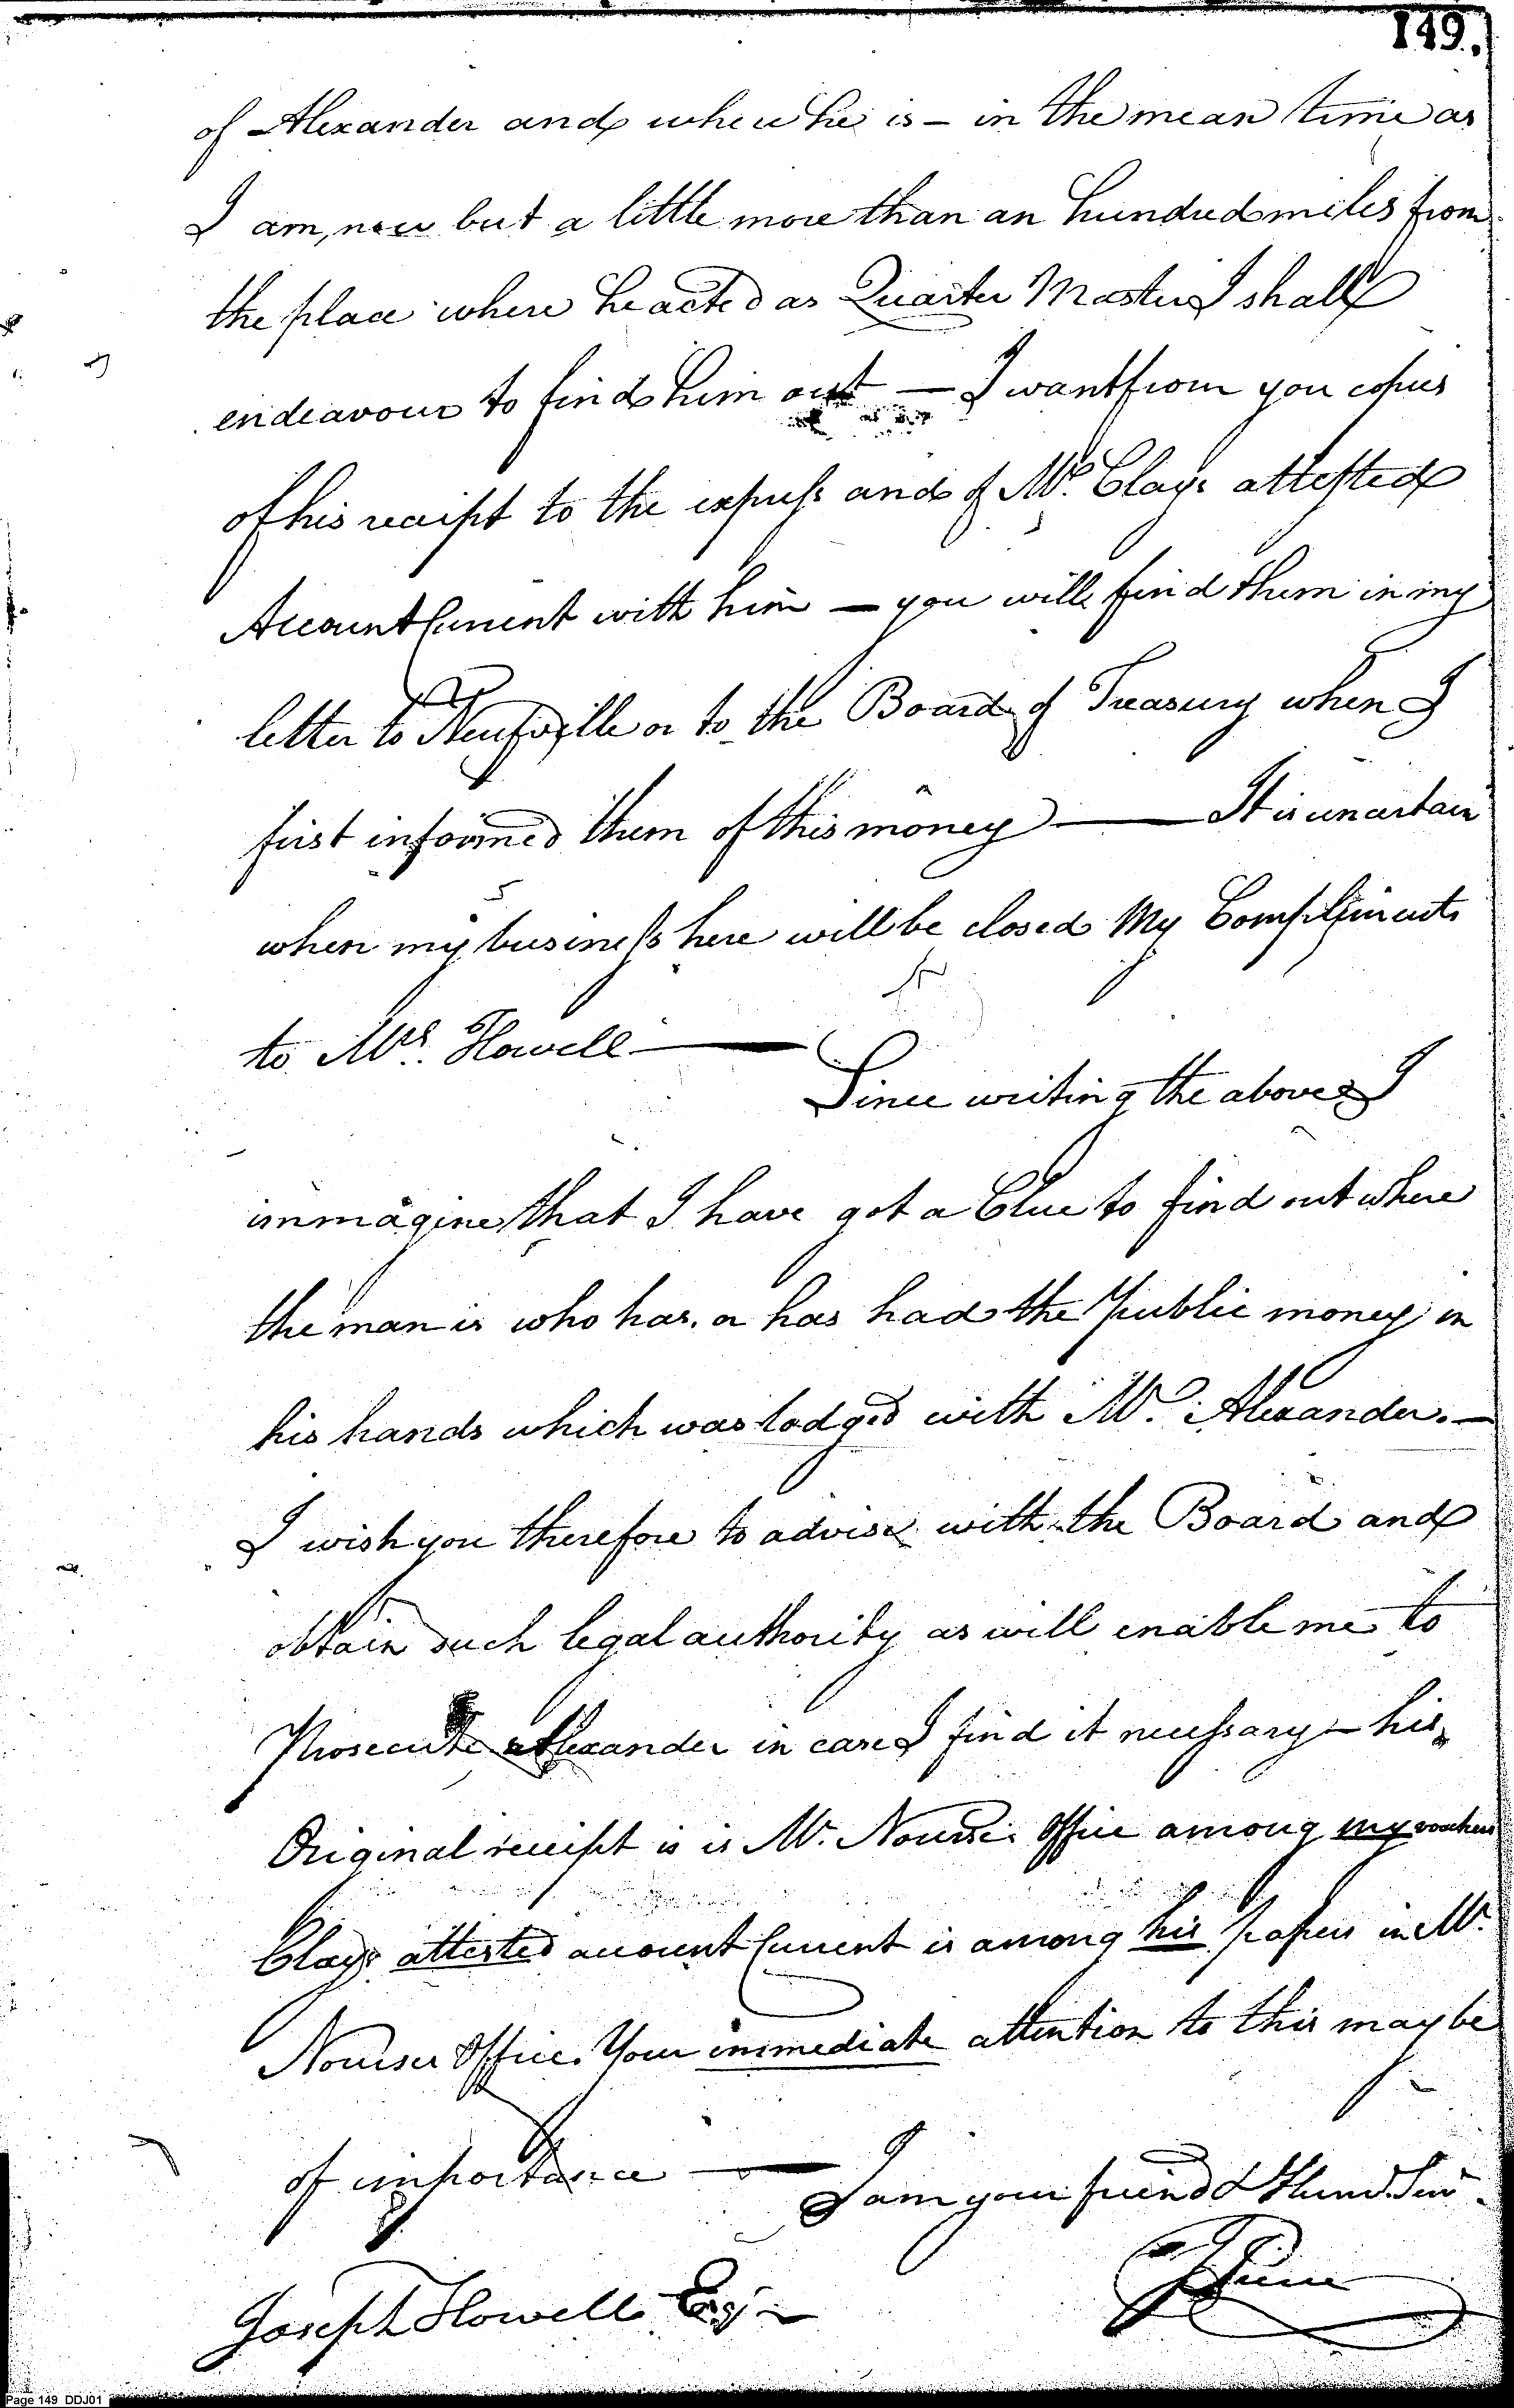 149.
of Alexander and where he is – in the mean time as
I am, now but a little more than an hundred miles from
the place where he acted as Quarter Master I shall
endeavour to find him out — I want from you copies
of his receipt to the express and of Mr. Clays attested
Account Current with him — you will find them in my
letter to Neufville or to the Board of Treasury when I
first informed them of this money —— It is uncertain
when my business here will be closed My Compliments
to Mrs. Howell ——
Since writing the above I
immagine that I have got a Clue to find out where
the man is who has, or has had the Public money in
his hands which was lodged with Mr. Alexander. —
I wish you therefore to advise with the Board and
obtain such legal authority as will enable me to
Prosecute Alexander in case I find it necessary – his
Original receipt is is Mr. Nourse's Office among my vouchers
Clays attested account Current is among his papers in Mr.
Nourses Office. Your immediate attention to this may be
of importance ——
I am your friend & Hum. Serv.
Joseph Howell Esqr
Page 149 DDJ01